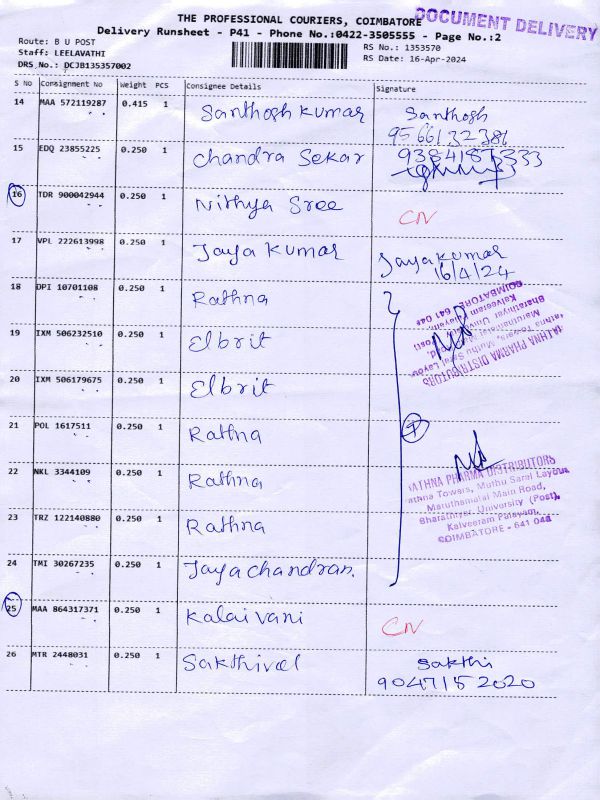 THE PROFESSIONAL COURIERS, COIMBATORE
DOCUMENT DELIVERY
Delivery Runsheet - P41 - Phone No.:0422-3505555 - Page No.:2
Route: B U POST
Staff: LEELAVATHI
DRS No.: DCJB135357002
RS No.: 1353570
RS Date: 16-Apr-2024
S No Consignment No Weight PCS Consignee Details Signature
14 MAA 572119287 0.415 1 Santhosh kumar Santhosh
9566132381
15 EDQ 23855225 0.250 1 Chandra Sekar 9384187333
16 TDR 900042944 0.250 1 Nithya Sree CN
17 VPL 222613998 0.250 1 Jaya kumar Jayakumar
16/4/24
18 DPI 10701108 0.250 1 Rathna
19 IXM 506232510 0.250 1 Elbrit
20 IXM 506179675 0.250 1 Elbrit
21 POL 1617511 0.250 1 Rathna
22 NKL 3344109 0.250 1 Rathna
23 TRZ 122140880 0.250 1 Rathna
24 TMI 30267235 0.250 1 Jayachandran.
25 MAA 864317371 0.250 1 Kalaivani CN
26 MTR 2448031 0.250 1 Sakthivel Sakthi
9047152020
7
RATHNA PHARMA DISTRIBUTORS
Rathna Towers, Muthu Saral Layout
Maruthamalai Main Road,
Bharathiyar University (Post),
Kalveeram Palayam,
COIMBATORE - 641 046
RATHNA PHARMA DISTRIBUTORS
Rathna Towers, Muthu Saral Layout
Bharathiyar University (Post)
COIMBATORE - 641 046